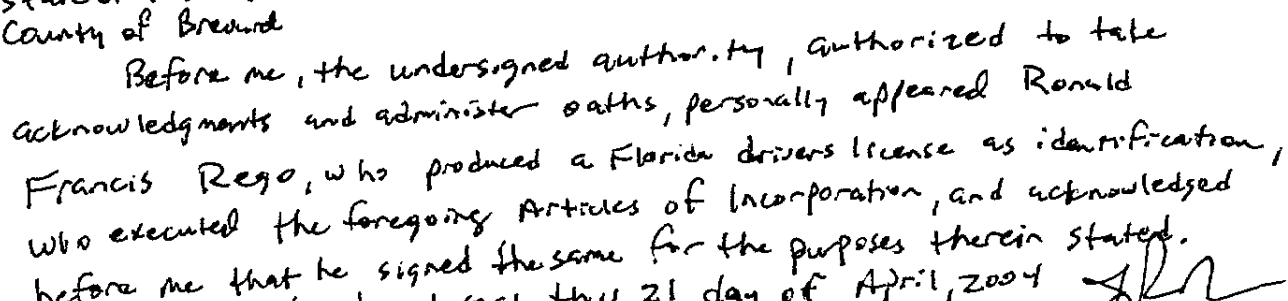 County of Brevard
Before me, the undersigned authority, authorized to take
acknowledgments and administer oaths, personally appeared Ronald
Francis Rego, who produced a Florida drivers license as identification,
who executed the foregoing Articles of Incorporation, and acknowledged
before me that he signed the same for the purposes therein stated.
this 21 day of April, 2004